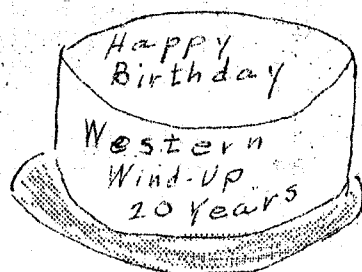 Happy
Birthday
Western
Wind-Up
20 Years